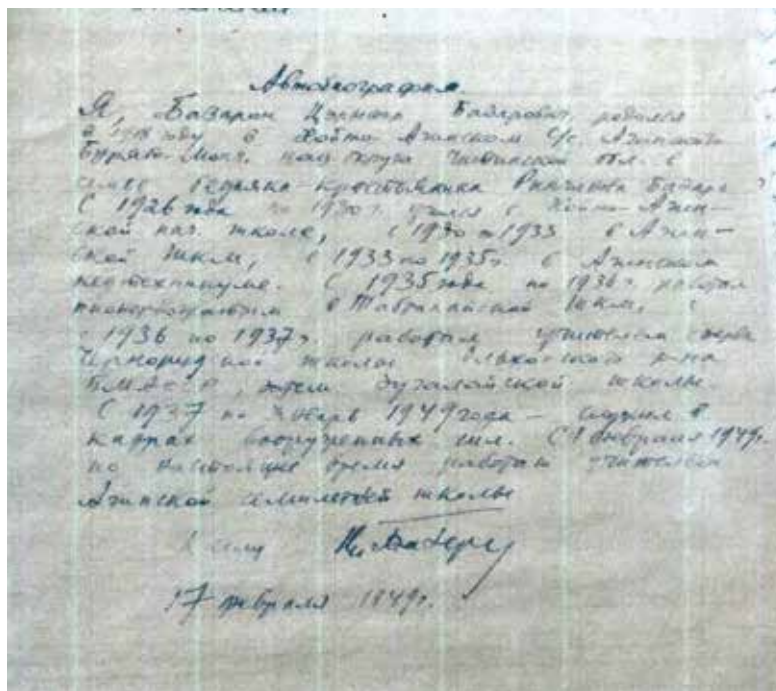 Автобиография.
Я, Базарон Базарович, родился
в году в Хойто-Агинском с/с. Агинского
Бурят-Монг. нац. округа Читинской обл. в
семье бедняка-крестьянина Базара
С 1926 года по 1930 г. учился в Хойто-Агин-
ской нач. школе, с 1930 по 1933 в Агин-
ской ШКМ, с 1933 по 1935 г. в Агинском
педтехникуме. С 1935 года по 1936 г. работал
пионервожатым в ШКМ,
с 1936 по 1937 г. работал учителем
школы Ольхонского р-на
БМАССР, школы.
С 1937 по Январь 1949 года — служил в
кадрах вооруженных сил. С 1 февраля 1949 г.
по настоящее время работаю учителем
Агинской семилетней школы
К сему
17 февраля 1949 г.